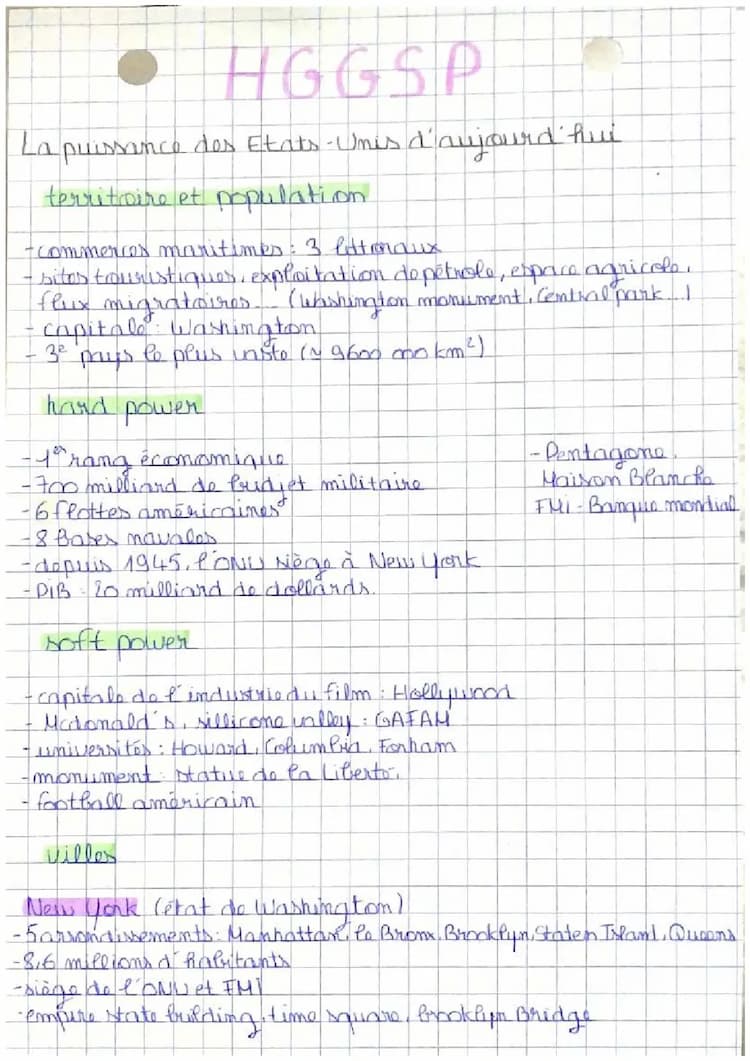 HGGSP
La puissance des Etats-Unis d'aujourd'hui
territoire et population
- commerces maritimes : 3 littoraux
- sites touristiques, exploitation de pétrole, espace agricole,
flux migratoires... (Washington monument, Central park...)
- capitale : Washington
- 3e pays le plus vaste (~ 9600 000 km²)
hard power
- 1er rang économique
- 700 milliard de budjet militaire
- 6 flottes américaines
- 8 bases navales
- depuis 1945, l'ONU siège à New York
- PiB : 20 milliard de dollards.
- Pentagone,
Maison Blanche
FMi - Banque mondial
soft power
- capitale de l'industrie du film : Hollywood
- Mcdonald's, sillicone valley : GAFAM
- universités : Howard, Columbia, Fonham
- monument : statue de la Liberté,
- football américain
villes
New York (état de Washington)
- 5 arrondissements : Manhattan, le Bronx, Brooklyn, Staten Island, Queens
- 8,6 millions d'habitants
- siège de l'ONU et FMi
- empire state building, time square, Brooklyn Bridge